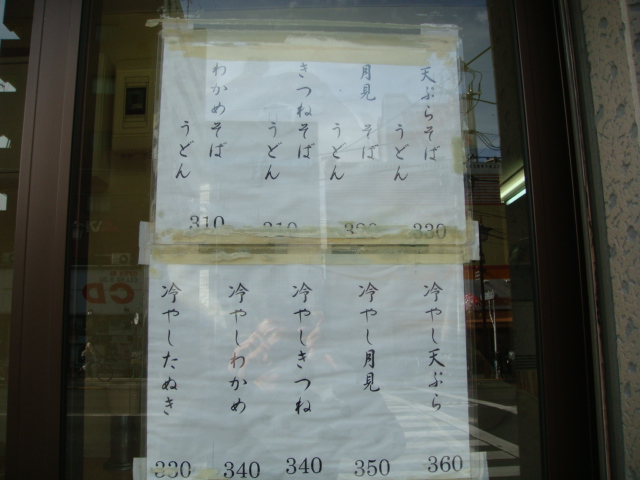 天ぷらそば
うどん
330
月見そば
うどん
きつねそば
うどん
310
わかめそば
うどん
310
冷やし天ぷら
360
冷やし月見
350
冷やしきつね
340
冷やしわかめ
340
冷やしたぬき
330
CD